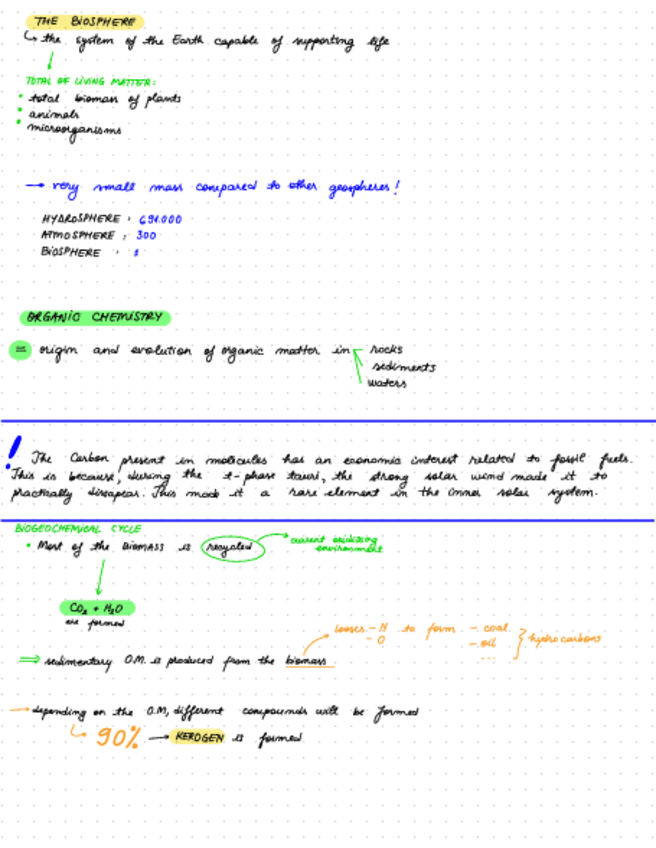 THE BIOSPHERE
↳ the system of the Earth capable of supporting life
TOTAL OF LIVING MATTER:
• total biomass of plants
• animals
• microorganisms
→ very small mass compared to other geospheres!
HYDROSPHERE : 691.000
ATMOSPHERE : 300
BIOSPHERE : 1
ORGANIC CHEMISTRY
= origin and evolution of organic matter in rocks
sediments
waters
! The Carbon present in molecules has an economic interest related to fossil fuels.
This is because, during the t-phase tauri, the strong solar wind made it to
practically dissapear. This made it a rare element in the inner solar system.
BIOGEOCHEMICAL CYCLE
• Most of the BIOMASS is recycled → current oxidizing
environment
CO₂ + H₂O
are formed
looses - N to form - coal } hydrocarbons
- O - oil
...
⇒ sedimentary O.M. is produced from the biomass
→ depending on the O.M, different compounds will be formed
↳ 90% → KEROGEN is formed